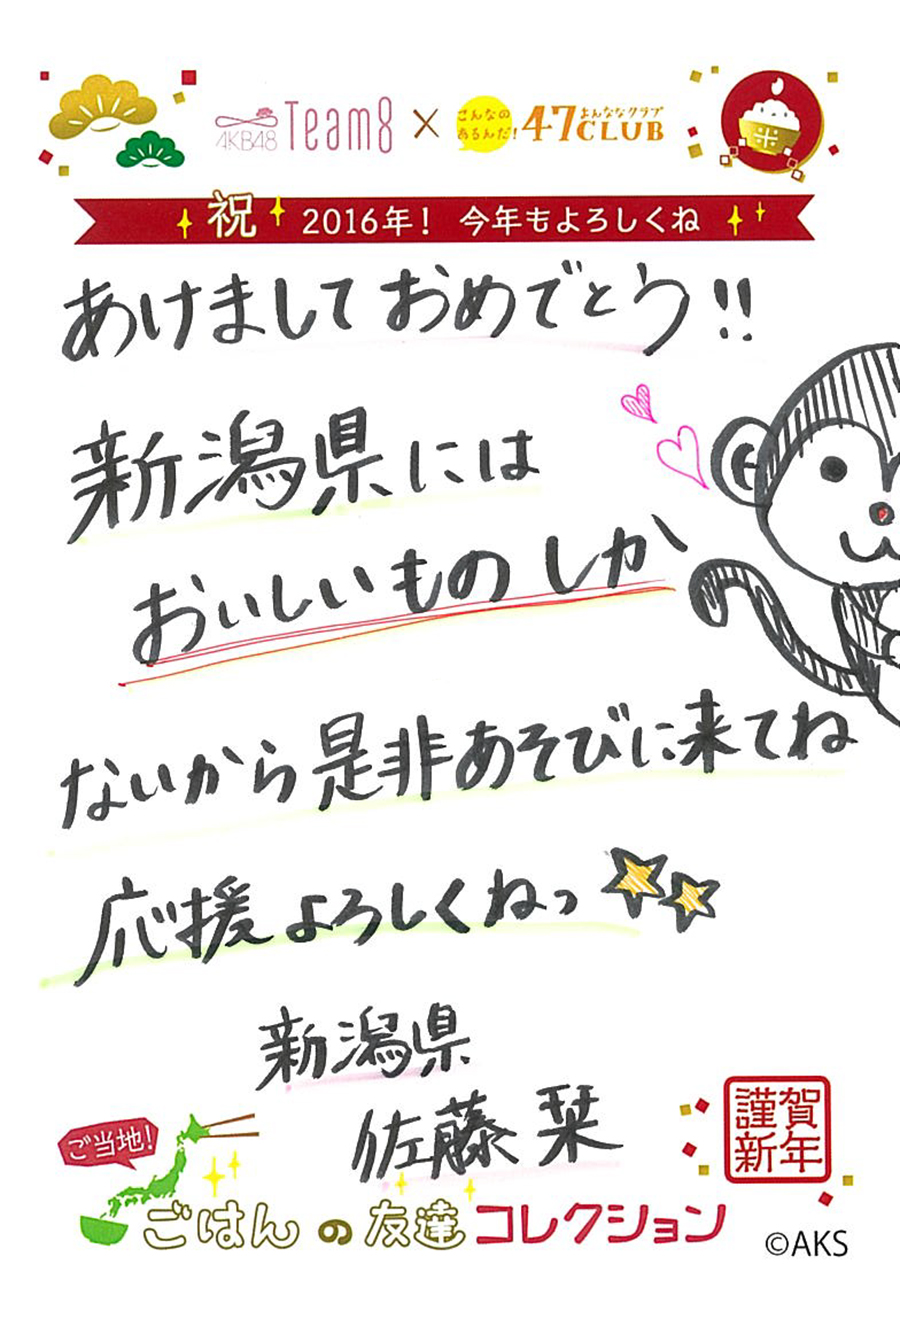 AKB48 Team8 × こんなのあるんだ! 47CLUB よんななクラブ
米
祝 2016年! 今年もよろしくね
あけまして おめでとう!!
新潟県には
おいしいもの しか
ないから是非あそびに来てね
応援よろしくねっ
新潟県
佐藤 栞
謹賀
新年
ご当地!
ごはんの友達コレクション
©AKS